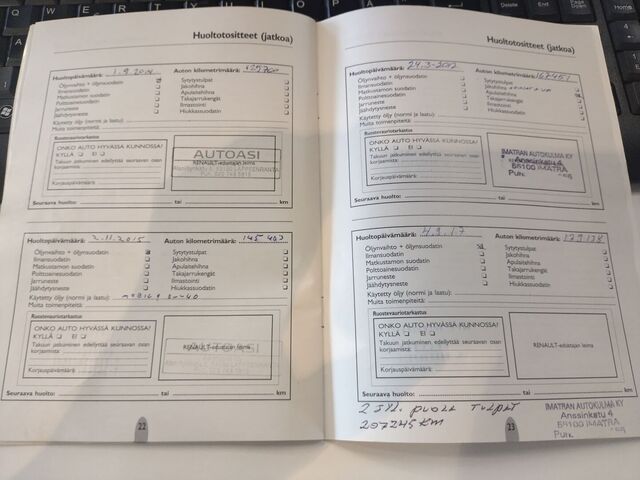 Huoltotositteet (jatkoa)
Huoltopäivämäärä: 1.9.2014 Auton kilometrimäärä: 125760
Öljynvaihto + öljynsuodatin
Ilmansuodatin
Matkustamon suodatin
Polttoainesuodatin
Jarruneste
Jäähdytysneste
Sytytystulpat
Jakohihna
Apulaitehihna
Takajarrukengät
Ilmastointi
Hiukkassuodatin
Käytetty öljy (normi ja laatu):
Muita toimenpiteitä:
Ruostevauriotarkastus
ONKO AUTO HYVÄSSÄ KUNNOSSA?
KYLLÄ EI
Takuun jatkuminen edellyttää seuraavan osan
korjaamista:
Korjauspäivämäärä:
AUTOASI
RENAULT-edustajan leima
LAPPEENRANTA
Seuraava huolto: tai km
Huoltopäivämäärä: 2.11.2015 Auton kilometrimäärä: 145 403
Öljynvaihto + öljynsuodatin
Ilmansuodatin
Matkustamon suodatin
Polttoainesuodatin
Jarruneste
Jäähdytysneste
Sytytystulpat
Jakohihna
Apulaitehihna
Takajarrukengät
Ilmastointi
Hiukkassuodatin
Käytetty öljy (normi ja laatu):
Muita toimenpiteitä:
Ruostevauriotarkastus
ONKO AUTO HYVÄSSÄ KUNNOSSA?
KYLLÄ EI
Takuun jatkuminen edellyttää seuraavan osan
korjaamista:
Korjauspäivämäärä:
AUTOASI
RENAULT-edustajan leima
Seuraava huolto: tai km
22
Huoltotositteet (jatkoa)
Huoltopäivämäärä: Auton kilometrimäärä: 167451
Öljynvaihto + öljynsuodatin
Ilmansuodatin
Matkustamon suodatin
Polttoainesuodatin
Jarruneste
Jäähdytysneste
Sytytystulpat
Jakohihna
Apulaitehihna
Takajarrukengät
Ilmastointi
Hiukkassuodatin
Käytetty öljy (normi ja laatu):
Muita toimenpiteitä:
Ruostevauriotarkastus
ONKO AUTO HYVÄSSÄ KUNNOSSA?
KYLLÄ EI
Takuun jatkuminen edellyttää seuraavan osan
korjaamista:
Korjauspäivämäärä:
IMATRAN AUTOKULMA KY
Anssinkatu 4
55100 IMATRA
Puh.
Seuraava huolto: tai km
Huoltopäivämäärä: 4.9.17 Auton kilometrimäärä: 179178
Öljynvaihto + öljynsuodatin
Ilmansuodatin
Matkustamon suodatin
Polttoainesuodatin
Jarruneste
Jäähdytysneste
Sytytystulpat
Jakohihna
Apulaitehihna
Takajarrukengät
Ilmastointi
Hiukkassuodatin
Käytetty öljy (normi ja laatu):
Muita toimenpiteitä:
Ruostevauriotarkastus
ONKO AUTO HYVÄSSÄ KUNNOSSA?
KYLLÄ EI
Takuun jatkuminen edellyttää seuraavan osan
korjaamista:
Korjauspäivämäärä:
RENAULT-edustajan leima
Seuraava huolto: tai km
2 syl. puola tulpat
207245 KM
23
IMATRAN AUTOKULMA KY
Anssinkatu 4
55100 IMATRA
Puh.